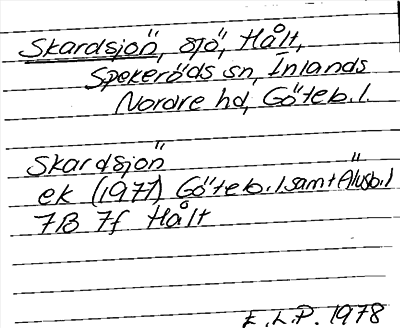 Skardsjön, sjö, Hålt,
Spekeröds sn, Inlands
Nordre hd, Göteb. l.
Skardsjön
ek (1977) Göteb. l samt Älvsb. l
7B 7f Hålt
E. L. P. 1978